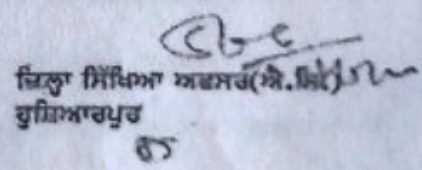 ਜ਼ਿਲ੍ਹਾ ਸਿੱਖਿਆ ਅਫਸਰ(ਐ.ਸਿੱ)
ਹੁਸ਼ਿਆਰਪੁਰ